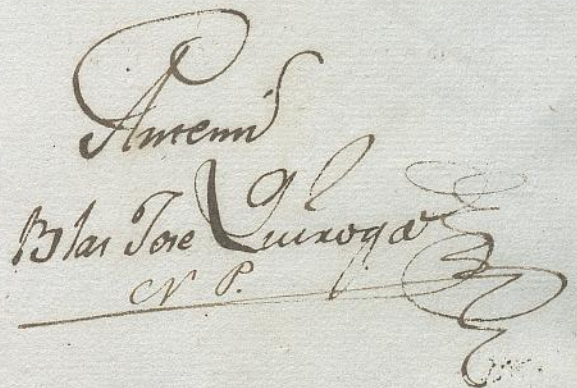 Antemi
Blas Jose Quiroga
N P.